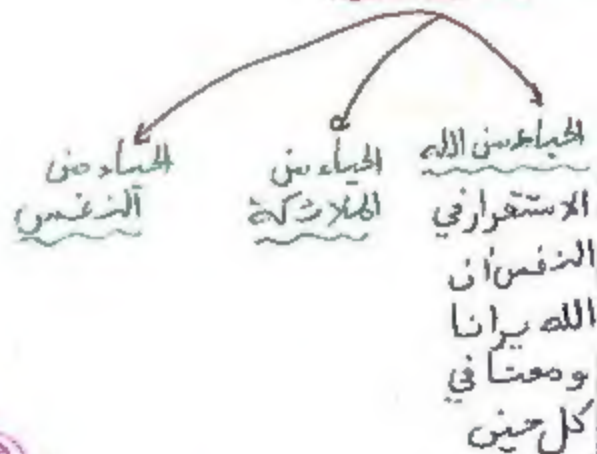 الحياء من الله
الاستقرار في
النفس أن
الله يرانا
ومعنا في
كل حين
الحياء من
الملائكة
الحياء من
النفس